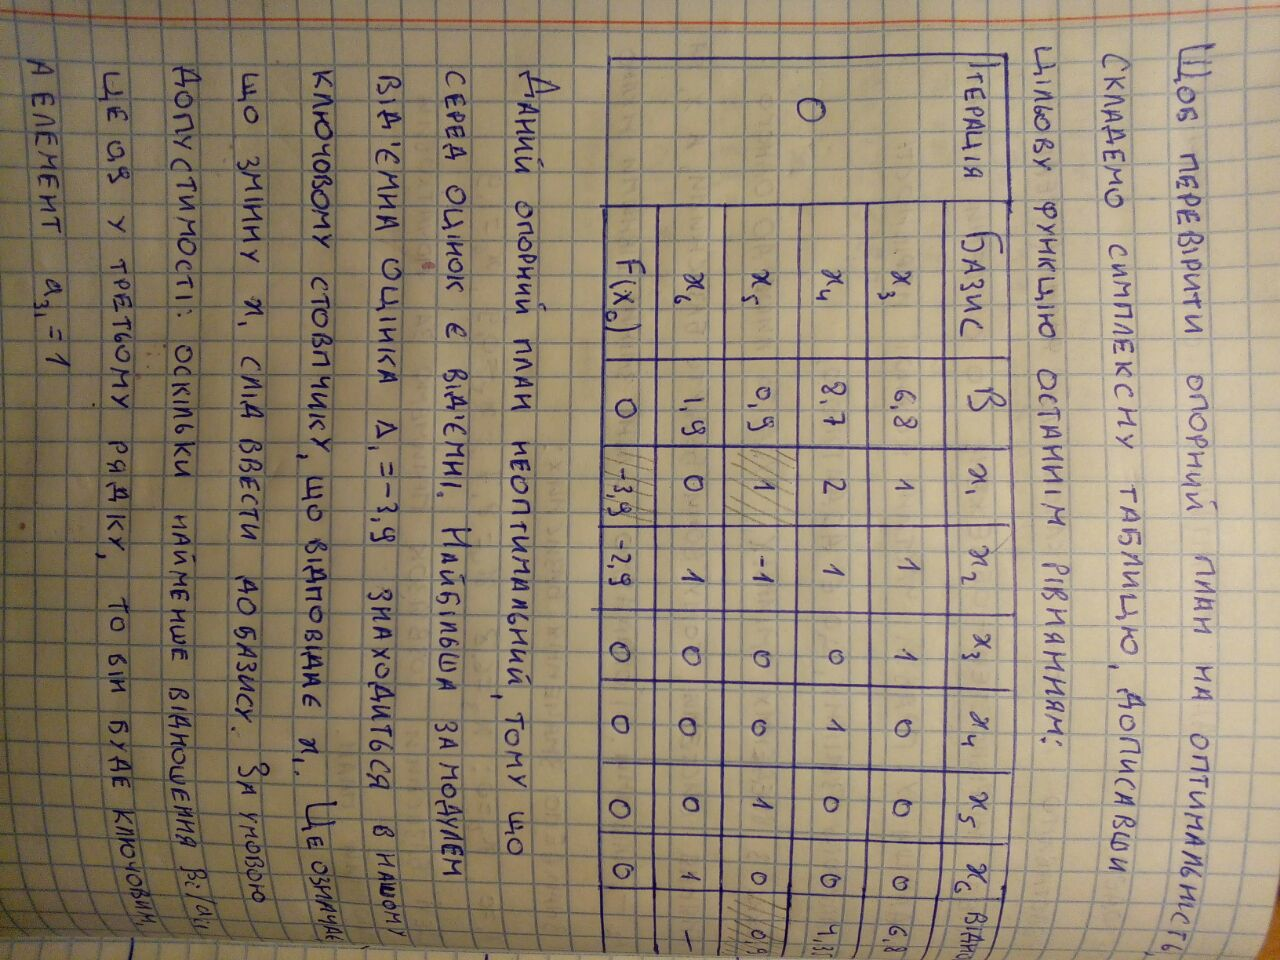 Щоб перевірити опорний план на оптимальність,
складемо симплексну таблицю, дописавши
цільову функцію останнім рівнянням:
Ітерація Базис B x₁ x₂ x₃ x₄ x₅ x₆
0
x₃ 6,8 1 1 1 0 0 0 6,8
x₄ 8,7 2 1 0 1 0 0 4,35
x₅ 0,9 1 -1 0 0 1 0 0,9
x₆ 1,9 0 1 0 0 0 1 –
F(x₀) 0 -3,9 -2,9 0 0 0 0
Даний опорний план неоптимальний, тому що
серед оцінок є від'ємні. Найбільша за модулем
від'ємна оцінка Δ₁ = -3,9 знаходиться в нашому
ключовому стовпчику, що відповідає x₁. Це означає,
що змінну x₁ слід ввести до базису. За умовою
допустимості: оскільки найменше відношення
це 0,9 у третьому рядку, то він буде ключовим,
а елемент a₃₁ = 1